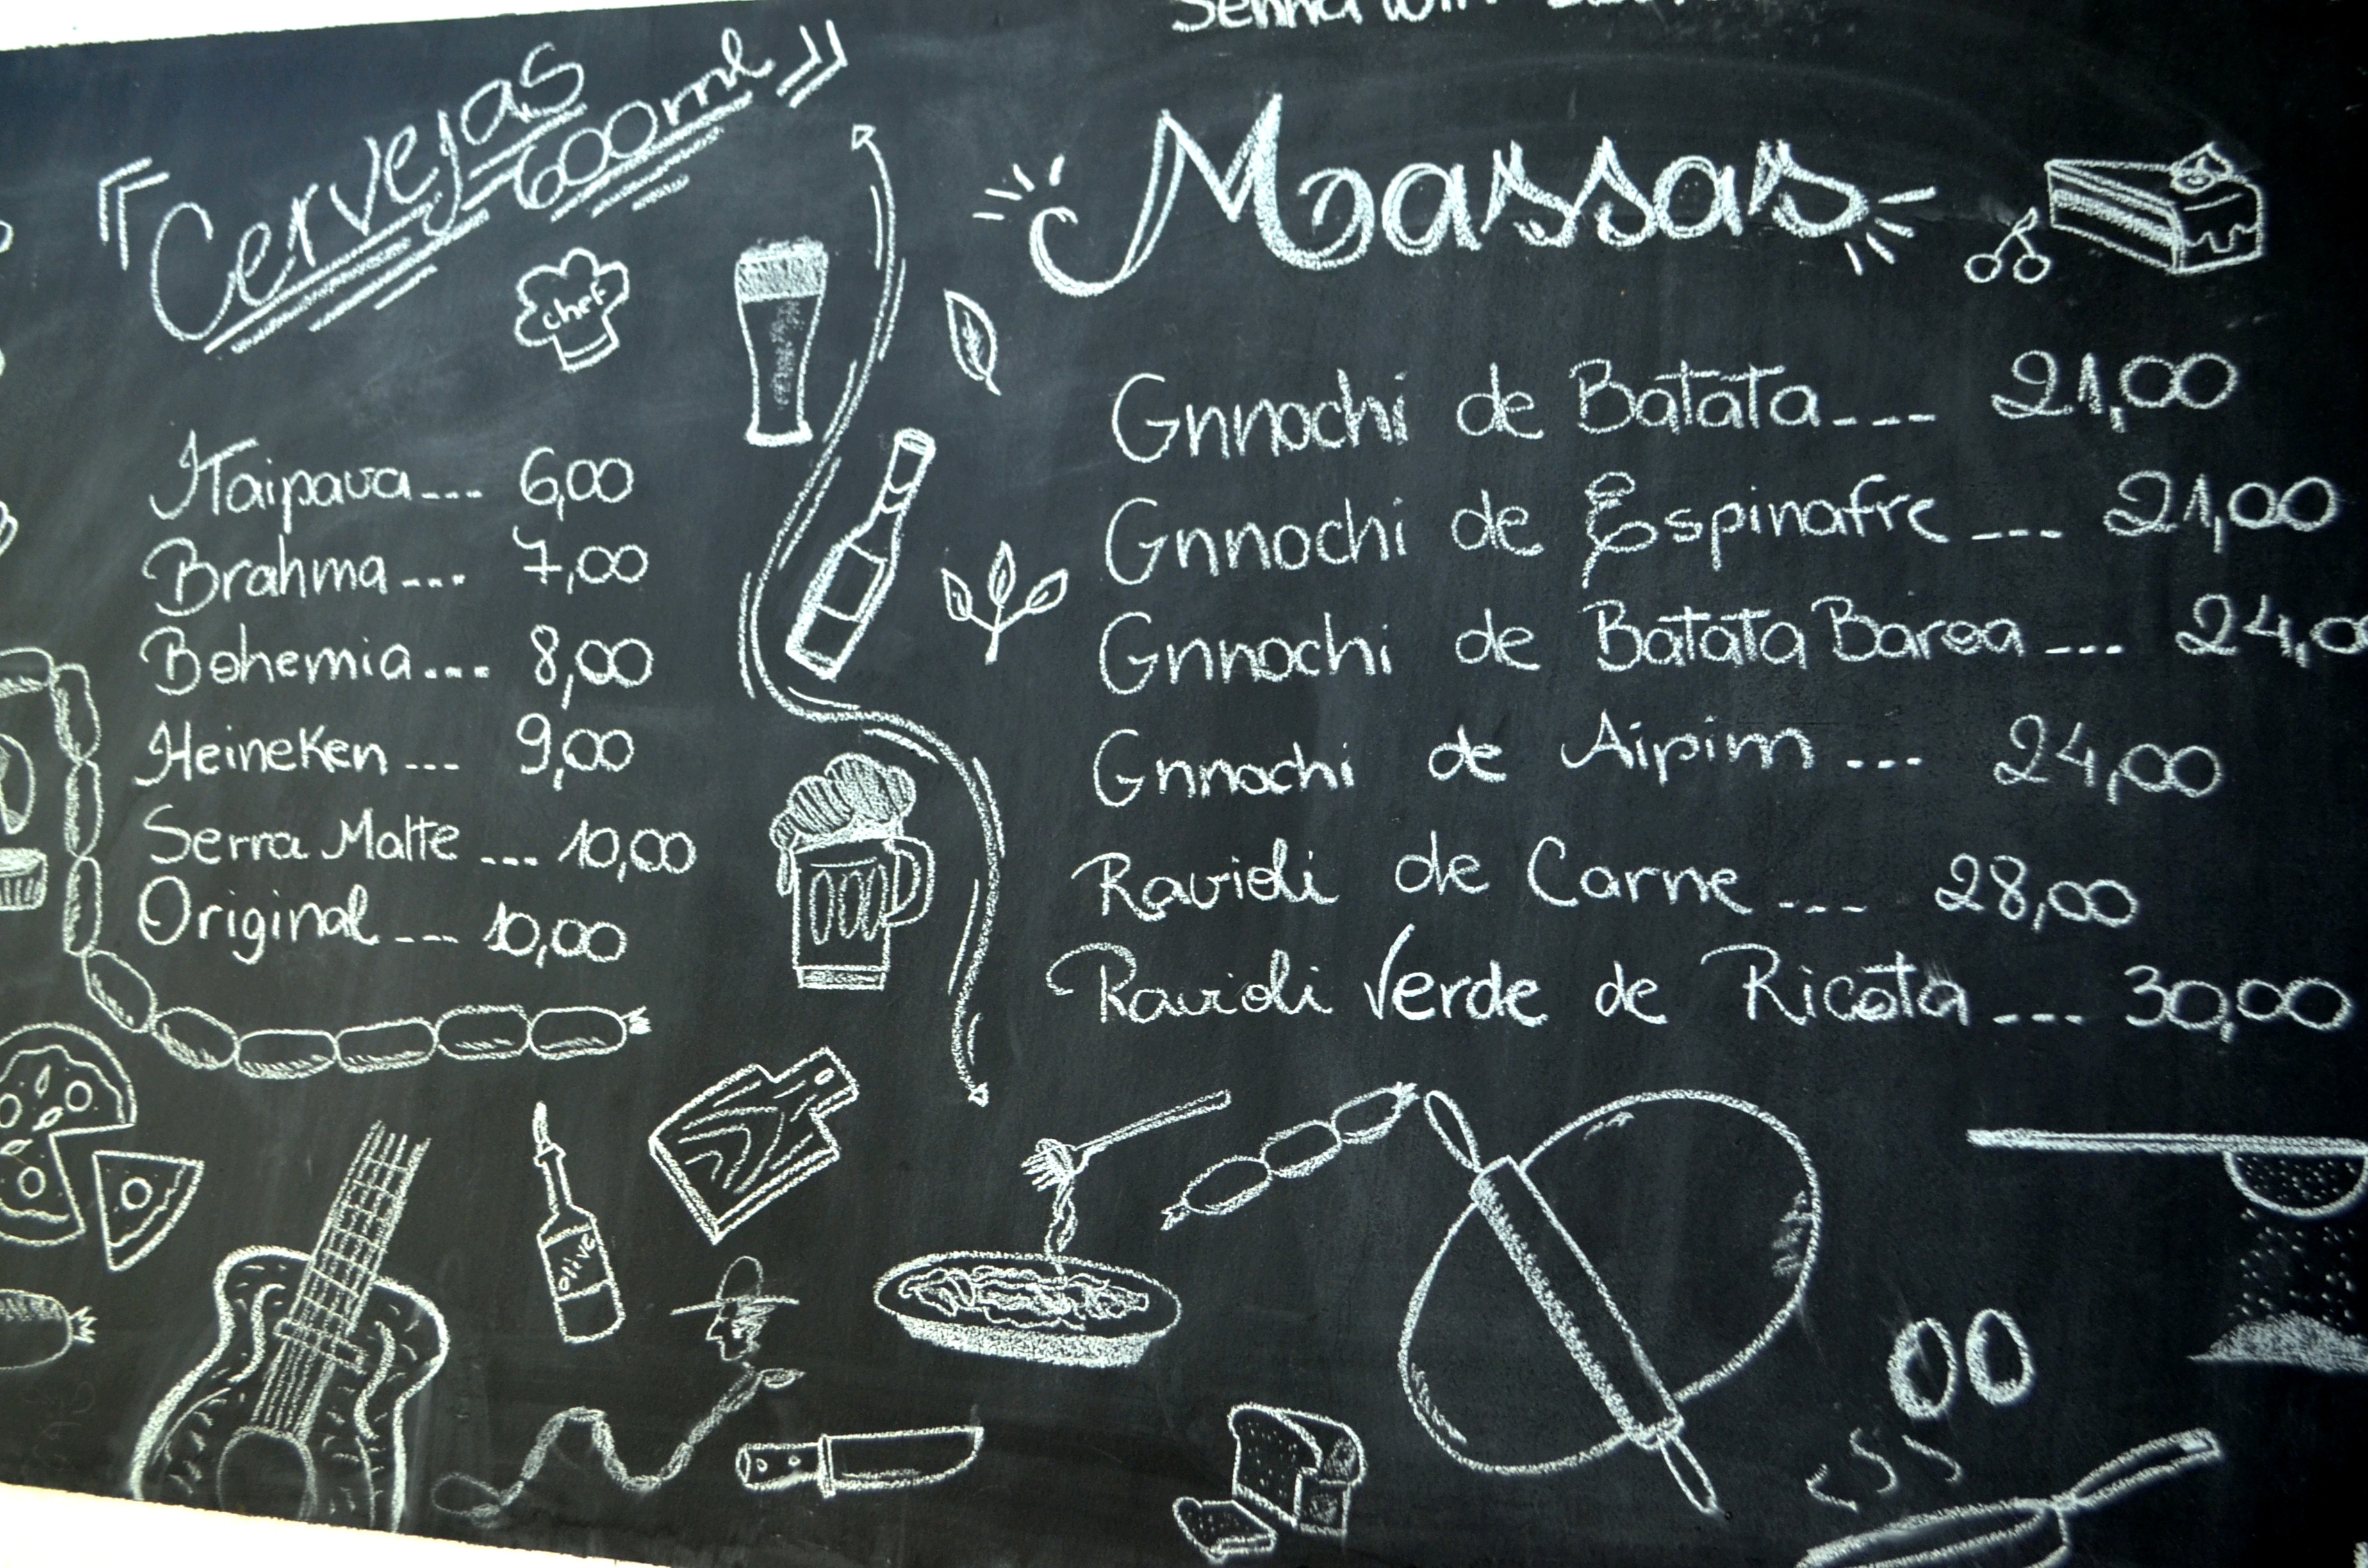 Cervejas
600ml
chef
Itaipava --- 6,00
Brahma --- 7,00
Bohemia --- 8,00
Heineken --- 9,00
Serra Malte --- 10,00
Original --- 10,00
olive
Massas
Gnnochi de Batata --- 21,00
Gnnochi de Espinafre --- 21,00
Gnnochi de Batata Baroa --- 24,00
Gnnochi de Aipim --- 24,00
Ravioli de Carne --- 28,00
Ravioli Verde de Ricota --- 30,00